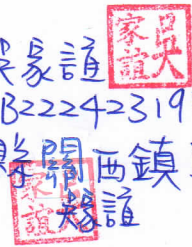 吳家誼
B22242319
縣關西鎮
家誼
吳家誼
吳家誼